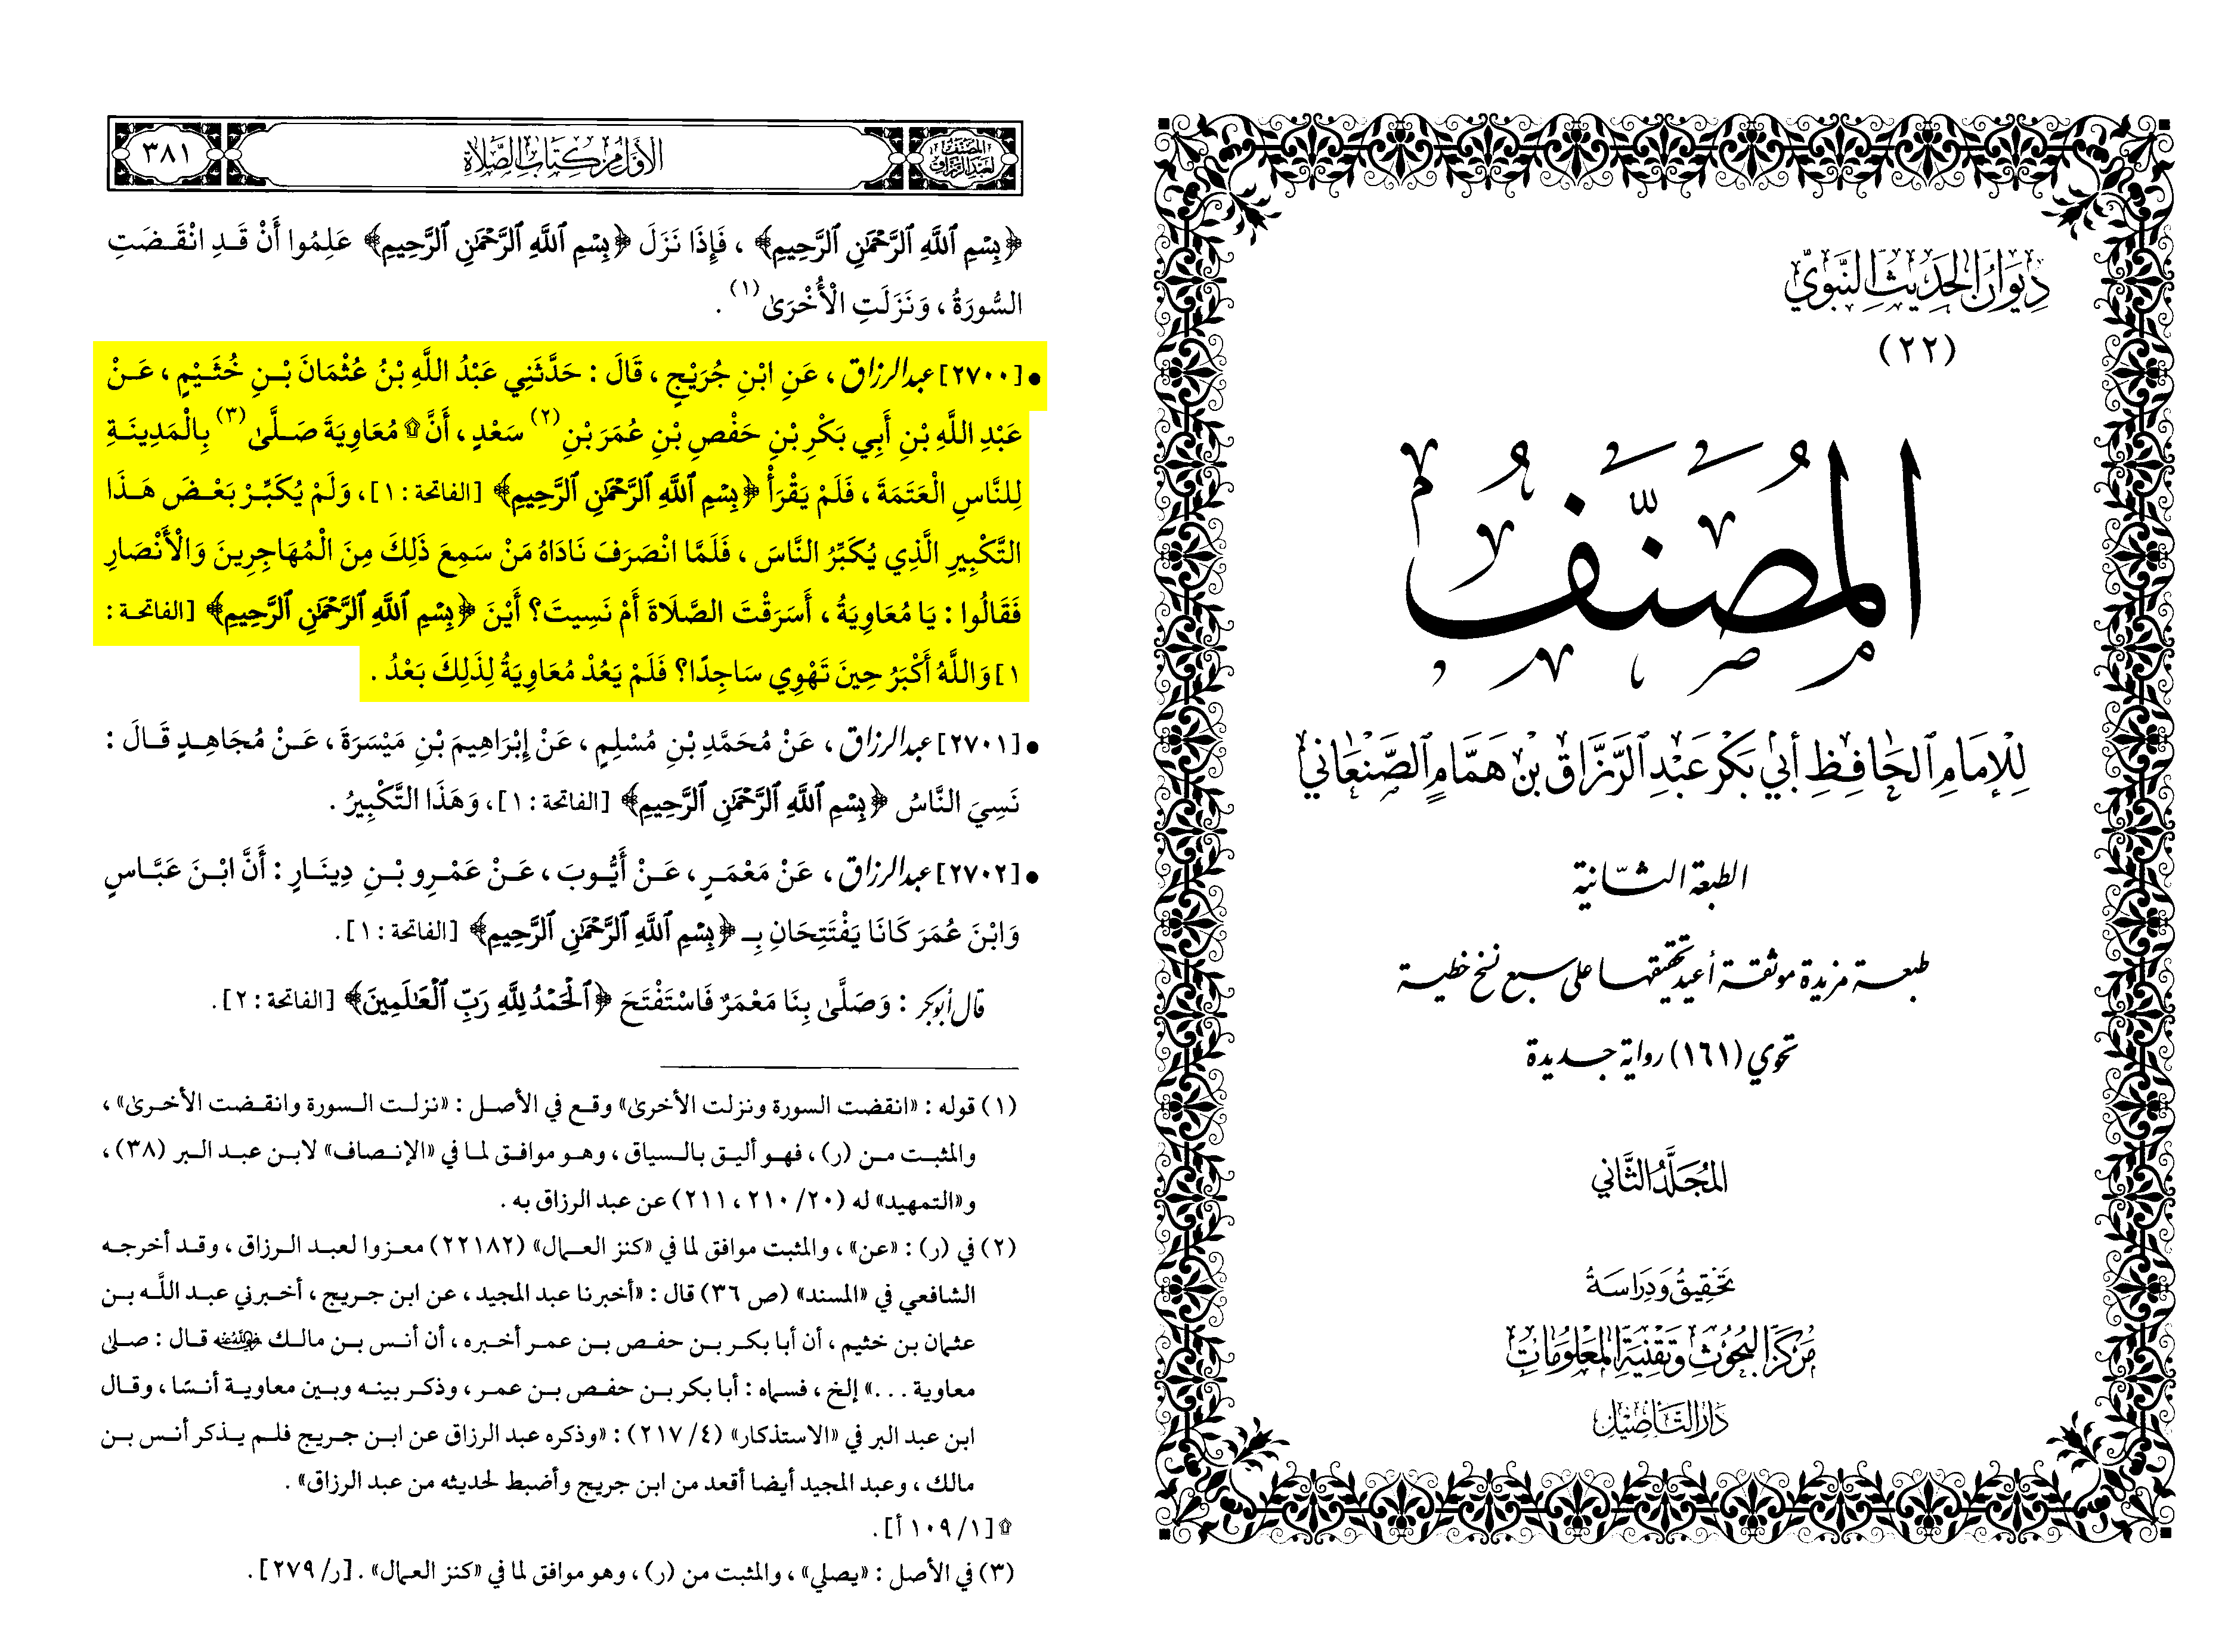 ديوان الحديث النبوي
(٢٢)
المصنف
للإمام الحافظ أبي بكر عبد الرزاق بن همام الصنعاني
الطبعة الثانية
طبعة مزيدة موثقة أعيد تحقيقها على سبع نسخ خطية
تحوي (١٦١) رواية جديدة
المجلد الثاني
تحقيق ودراسة
مركز البحوث وتقنية المعلومات
دار التأصيل
المصنف لعبد الرزاق
الأول من كتاب الصلاة
٣٨١
﴿بِسْمِ ٱللَّهِ ٱلرَّحْمَٰنِ ٱلرَّحِيمِ﴾ ، فَإِذَا نَزَلَ ﴿بِسْمِ ٱللَّهِ ٱلرَّحْمَٰنِ ٱلرَّحِيمِ﴾ عَلِمُوا أَنْ قَدِ انْقَضَتِ
السُّورَةُ ، وَنَزَلَتِ الْأُخْرَىٰ(١) .
• [٢٧٠٠] عبد الرزاق ، عَنِ ابْنِ جُرَيْجٍ ، قَالَ : حَدَّثَنِي عَبْدُ اللَّهِ بْنُ عُثْمَانَ بْنِ خُثَيْمٍ ، عَنْ
عَبْدِ اللَّهِ بْنِ أَبِي بَكْرِ بْنِ حَفْصِ بْنِ عُمَرَ بْنِ(٢) سَعْدٍ ، أَنَّ ۩ مُعَاوِيَةَ صَلَّىٰ(٣) بِالْمَدِينَةِ
لِلنَّاسِ الْعَتَمَةَ ، فَلَمْ يَقْرَأْ ﴿بِسْمِ ٱللَّهِ ٱلرَّحْمَٰنِ ٱلرَّحِيمِ﴾ [الفاتحة : ١] ، وَلَمْ يُكَبِّرْ بَعْضَ هَذَا
التَّكْبِيرِ الَّذِي يُكَبِّرُ النَّاسَ ، فَلَمَّا انْصَرَفَ نَادَاهُ مَنْ سَمِعَ ذَلِكَ مِنَ الْمُهَاجِرِينَ وَالْأَنْصَارِ
فَقَالُوا : يَا مُعَاوِيَةُ ، أَسَرَقْتَ الصَّلَاةَ أَمْ نَسِيتَ؟ أَيْنَ ﴿بِسْمِ ٱللَّهِ ٱلرَّحْمَٰنِ ٱلرَّحِيمِ﴾ [الفاتحة :
١] وَاللَّهُ أَكْبَرُ حِينَ تَهْوِي سَاجِدًا؟ فَلَمْ يَعُدْ مُعَاوِيَةُ لِذَلِكَ بَعْدُ .
• [٢٧٠١] عبد الرزاق ، عَنْ مُحَمَّدِ بْنِ مُسْلِمٍ ، عَنْ إِبْرَاهِيمَ بْنِ مَيْسَرَةَ ، عَنْ مُجَاهِدٍ قَالَ :
نَسِيَ النَّاسُ ﴿بِسْمِ ٱللَّهِ ٱلرَّحْمَٰنِ ٱلرَّحِيمِ﴾ [الفاتحة : ١] ، وَهَذَا التَّكْبِيرُ .
• [٢٧٠٢] عبد الرزاق ، عَنْ مَعْمَرٍ ، عَنْ أَيُّوبَ ، عَنْ عَمْرِو بْنِ دِينَارٍ : أَنَّ ابْنَ عَبَّاسٍ
وَابْنَ عُمَرَ كَانَا يَفْتَتِحَانِ بِـ ﴿بِسْمِ ٱللَّهِ ٱلرَّحْمَٰنِ ٱلرَّحِيمِ﴾ [الفاتحة : ١] .
قال أبو بكر : وَصَلَّىٰ بِنَا مَعْمَرٌ فَاسْتَفْتَحَ ﴿ٱلْحَمْدُ لِلَّهِ رَبِّ ٱلْعَٰلَمِينَ﴾ [الفاتحة : ٢] .
(١) قوله : «انقضت السورة ونزلت الأخرىٰ» وقع في الأصل : «نزلت السورة وانقضت الأخرىٰ» ،
والمثبت من (ر) ، فهو أليق بالسياق ، وهو موافق لما في «الإنصاف» لابن عبد البر (٣٨) ،
و«التمهيد» له (٢٠/ ٢١٠ ، ٢١١) عن عبد الرزاق به .
(٢) في (ر) : «عن» ، والمثبت موافق لما في «كنز العمال» (٢٢١٨٢) معزوا لعبد الرزاق ، وقد أخرجه
الشافعي في «المسند» (ص ٣٦) قال : «أخبرنا عبد المجيد ، عن ابن جريج ، أخبرني عبد اللَّه بن
عثمان بن خثيم ، أن أبا بكر بن حفص بن عمر أخبره ، أن أنس بن مالك رضي الله عنه قال : صلىٰ
معاوية . . .» إلخ ، فسماه : أبا بكر بن حفص بن عمر ، وذكر بينه وبين معاوية أنسًا ، وقال
ابن عبد البر في «الاستذكار» (٤/ ٢١٧) : «وذكره عبد الرزاق عن ابن جريج فلم يذكر أنس بن
مالك ، وعبد المجيد أيضا أقعد من ابن جريج وأضبط لحديثه من عبد الرزاق» .
۩ [١/ ١٠٩ أ] .
(٣) في الأصل : «يصلي» ، والمثبت من (ر) ، وهو موافق لما في «كنز العمال» . [ر/ ٢٧٩] .